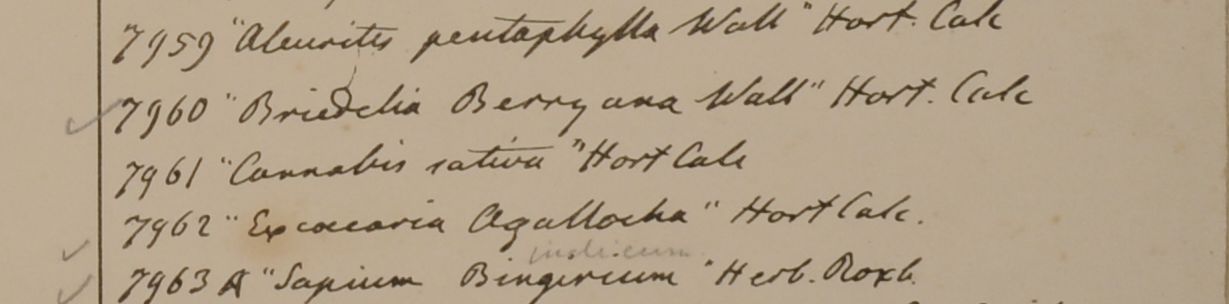 7959 "Aleurites pentaphylla Wall" Hort. Calc
7960 "Briedelia Berryana Wall" Hort. Calc
7961 "Cannabis sativa" Hort Calc
7962 "Excoecaria Agallocha" Hort Calc.
indicum
7963 A "Sapium Bingerium" Herb. Roxb.